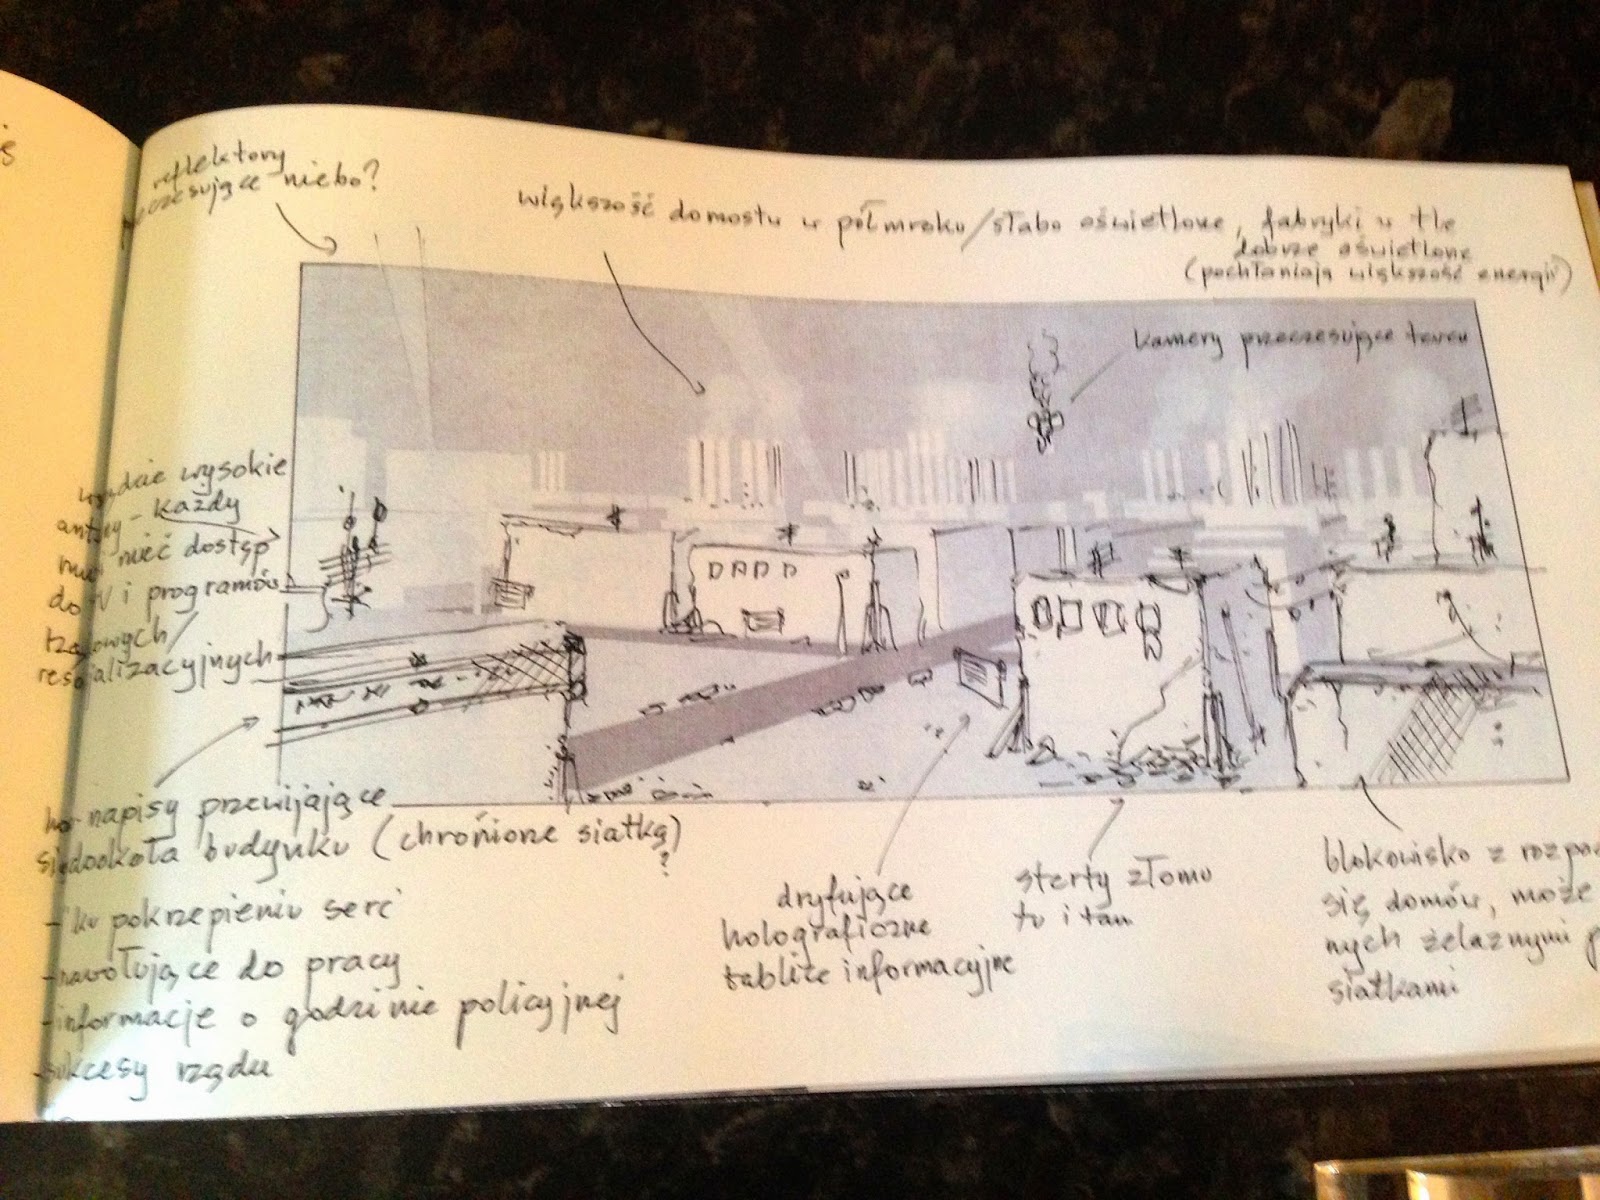 ś
reflektory
czesujące niebo?
większość domostw w półmroku/słabo oświetlone, fabryki w tle
dobrze oświetlone
(pochłaniają większość energii)
kamery przeczesujące teren
wszędzie wysokie
anteny - każdy
musi mieć dostęp
do TV i programów
rządowych/
resocjalizacyjnych
napisy przewijające
się dookoła budynku (chronione siatką)
?
- "ku pokrzepieniu serc
- nawołujące do pracy
- informacje o godzinie policyjnej
- sukcesy rządu
DADD
dryfujące
holograficzne
tablice informacyjne
sterty złomu
tu i tam
blokowisko z
się domów, może
nych żelaznymi
siatkami